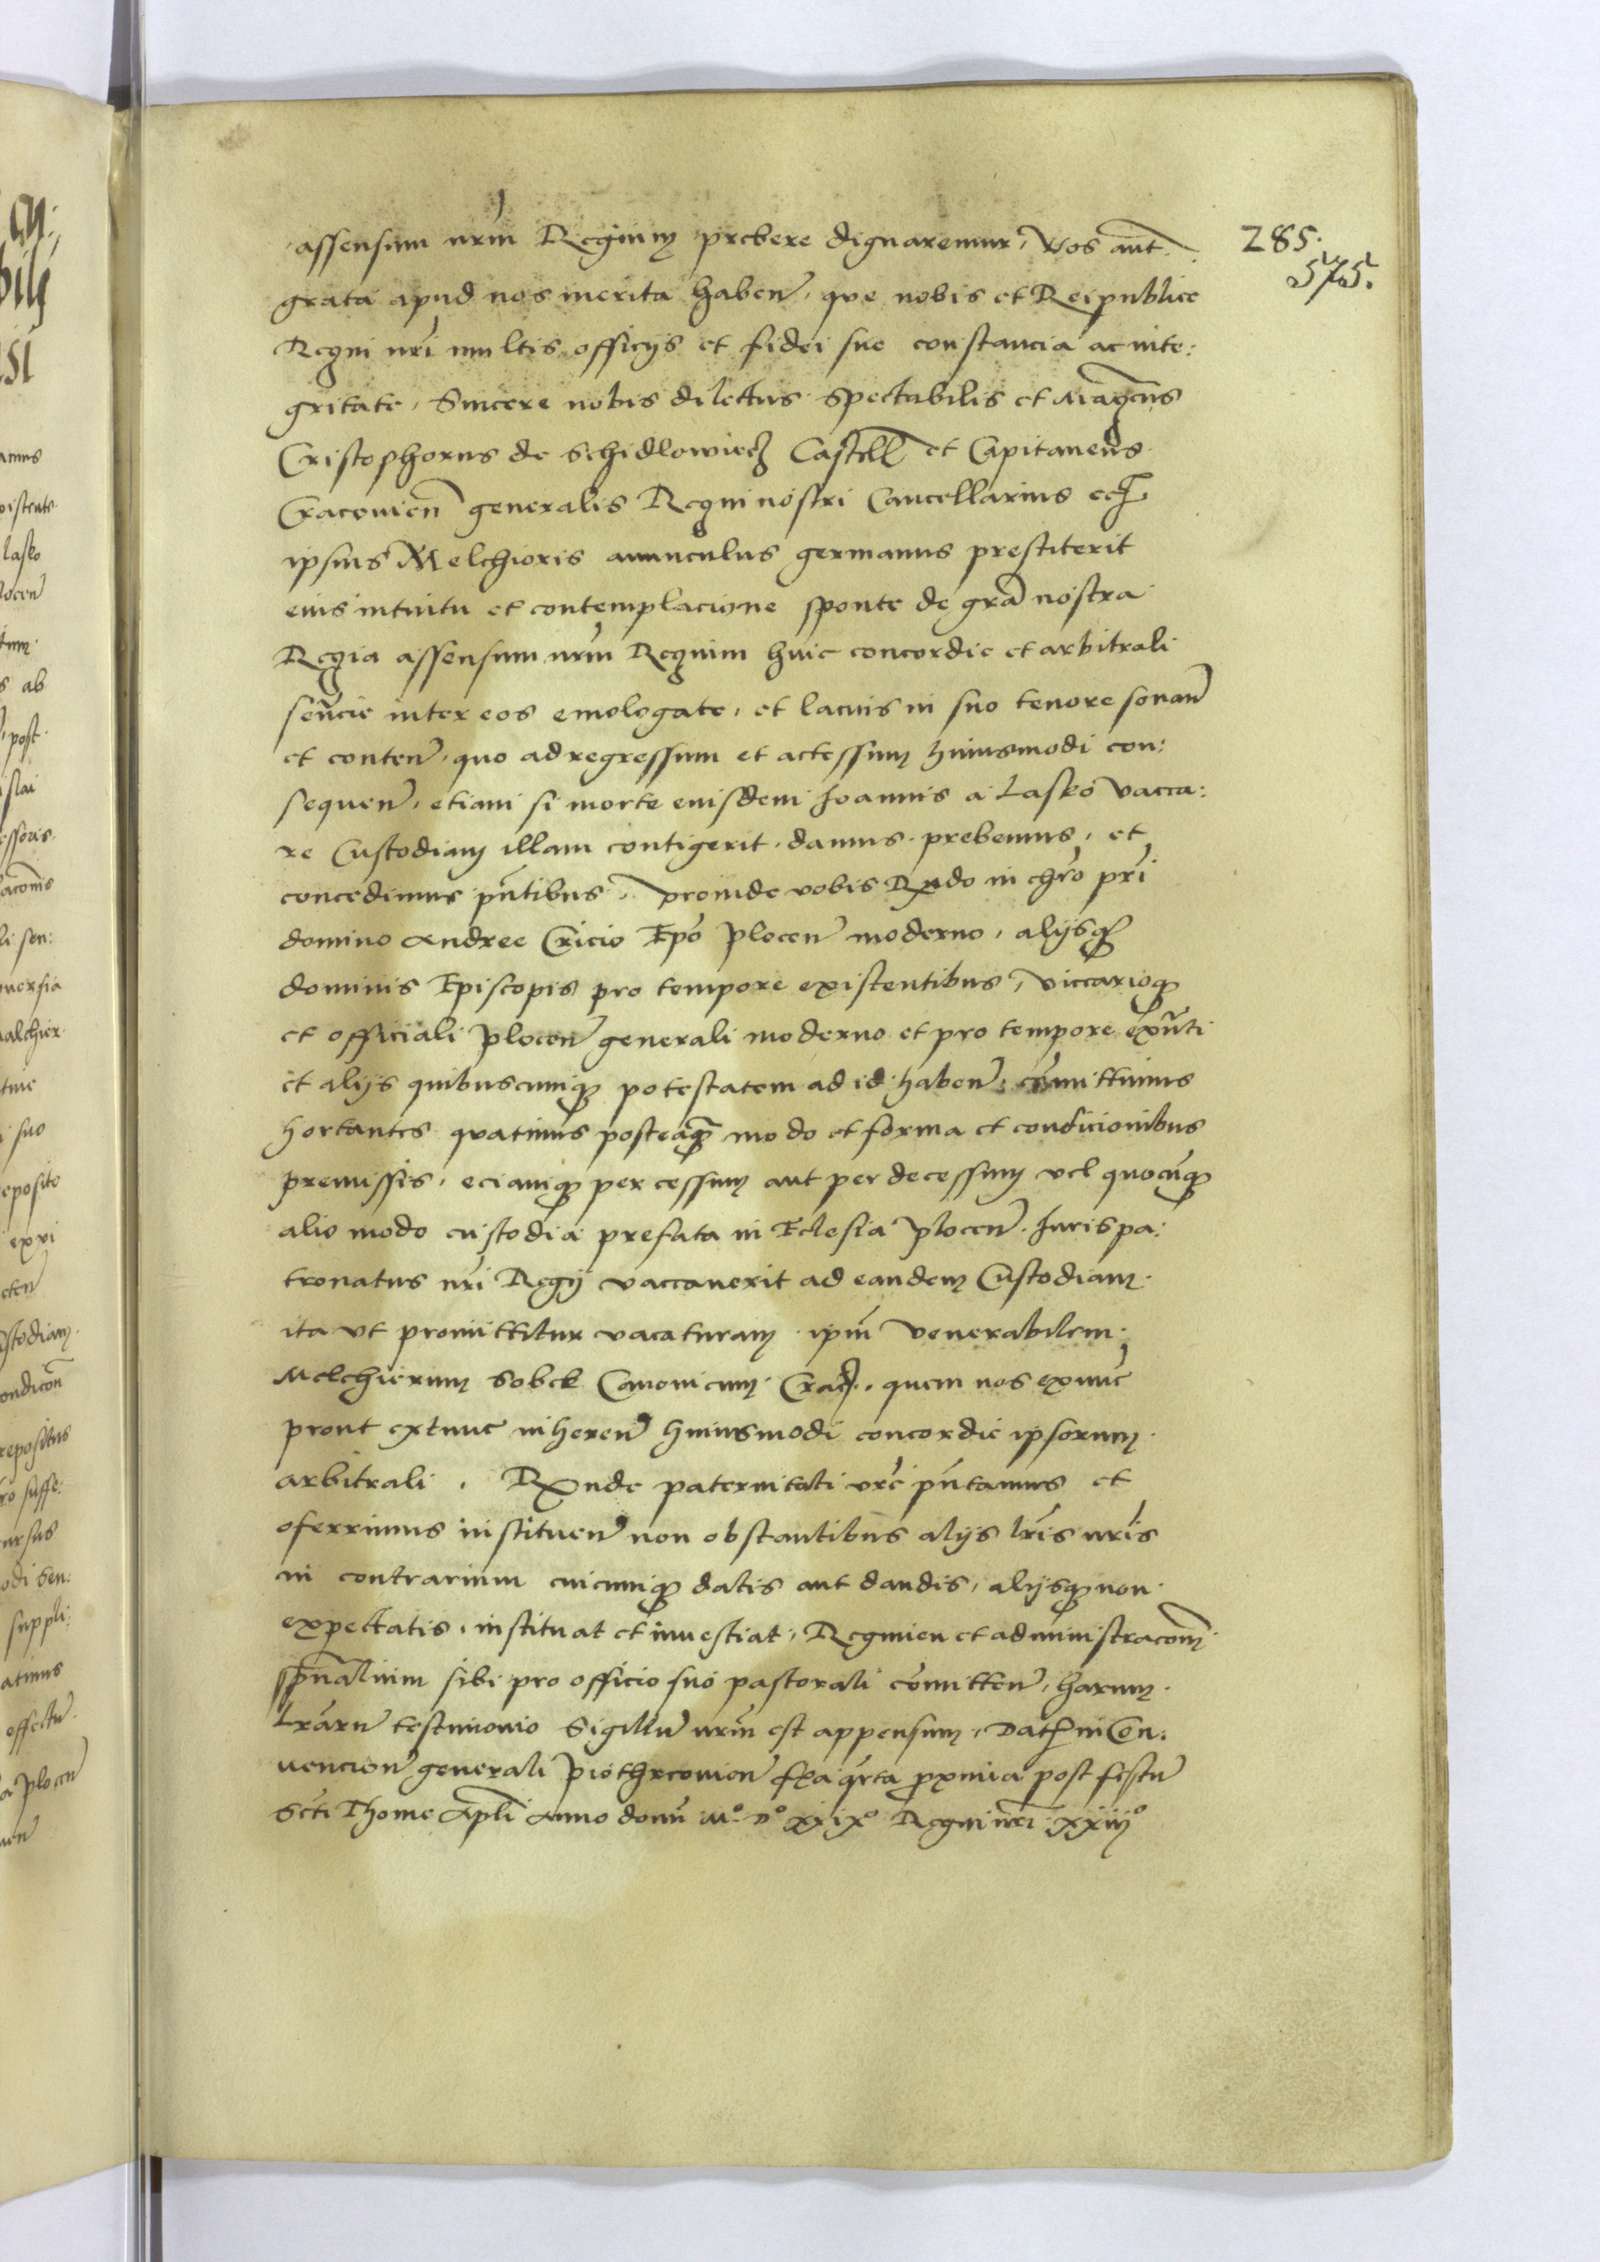 assensum nrm̃ Regium prebere dignaremur, Nos aut̃
285.
575.
grata apud nos merita haben̄, que nobis et Reipublice
Regni nrĩ multis officijs et fidei sue constancia ac inte:
gritate, Sincere nobis dilectus Spectabilis et Magcūs
Cristophorus de Schidlowiecz Castell̃ et Capitaneus
Cracouien̄ generalis Regni nostri Cancellarius etc̄
ipsius Melchioris auunculus germanus prestiterit
eius intuitu et contemplacione sponte de gr̃a nostra
Regia assensum nrm̃ Regium huic concordie et arbitrali
sen̄cie inter eos emologate, et lacius in suo tenore sonan̄
et conten̄, quo ad regressum et accessum huiusmodi con:
sequen̄, etiam si morte eiusdem Joannis a Lasko vacca:
re Custodiam illam contigerit, damus prebemus, et
concedimus pn̄tibus, proinde vobis Rndo in chr̃o pr̃i
domino Andree Cricio Ep̃o Plocen̄ moderno, alijsq̃
dominis Episcopis pro tempore existentibus, viccarioq̃
et officiali Plocen̄ generali moderno et pro tempore exn̄ti
et alijs quibuscunq̃ potestatem ad id haben̄, cōmittimus
hortantes quatinus posteaq̃ modo et forma et condicionibus
premissis, eciamq̃ per cessum aut per decessum vel quocūq̃
alio modo custodia prefata in Eclesia Plocen̄ Juris pa:
tronatus nrĩ Regij vaccauerit ad eandem Custodiam
ita vt promittitur vacaturam ipm̄ Venerabilem
Melchiorum Sobek Canonicum Crac̄, quem nos exnuc̄
prout extunc inheren̄ huiusmodi concordie ipsorum
arbitrali, Rnde paternitati vrẽ pn̄tamus et
oferrimus instituen̄ non obstantibus alijs lr̃is nrĩs
in contrarium cuicunq̃ datis aut dandis, alijsq̃ non
expectatis, instituat et inuestiat, Regimen et administracom̃
sp̃ualium sibi pro officio suo pastorali cōmitten̄, harum
Lrãrū testimonio Sigillū nrm̃ est appensum, Dat̃ in Con:
uencion̄ generali Piothrcouien̄ fr̃ia qr̃ta proxima post festū
Scti Thome Apl̃i Anno domī Mº Dº xxixº Regni nrĩ xxiijº